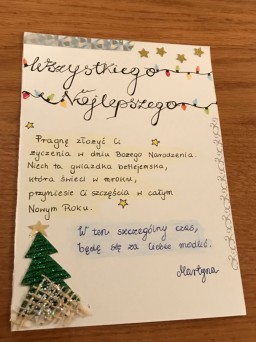 Wszystkiego
Najlepszego
Pragnę złożyć Ci
życzenia w dniu Bożego Narodzenia.
Niech ta gwiazdka betlejemska,
która świeci w mroku,
przyniesie Ci szczęścia w całym
Nowym Roku.
W ten szczególny czas,
będę się za Ciebie modlić.
Martyna